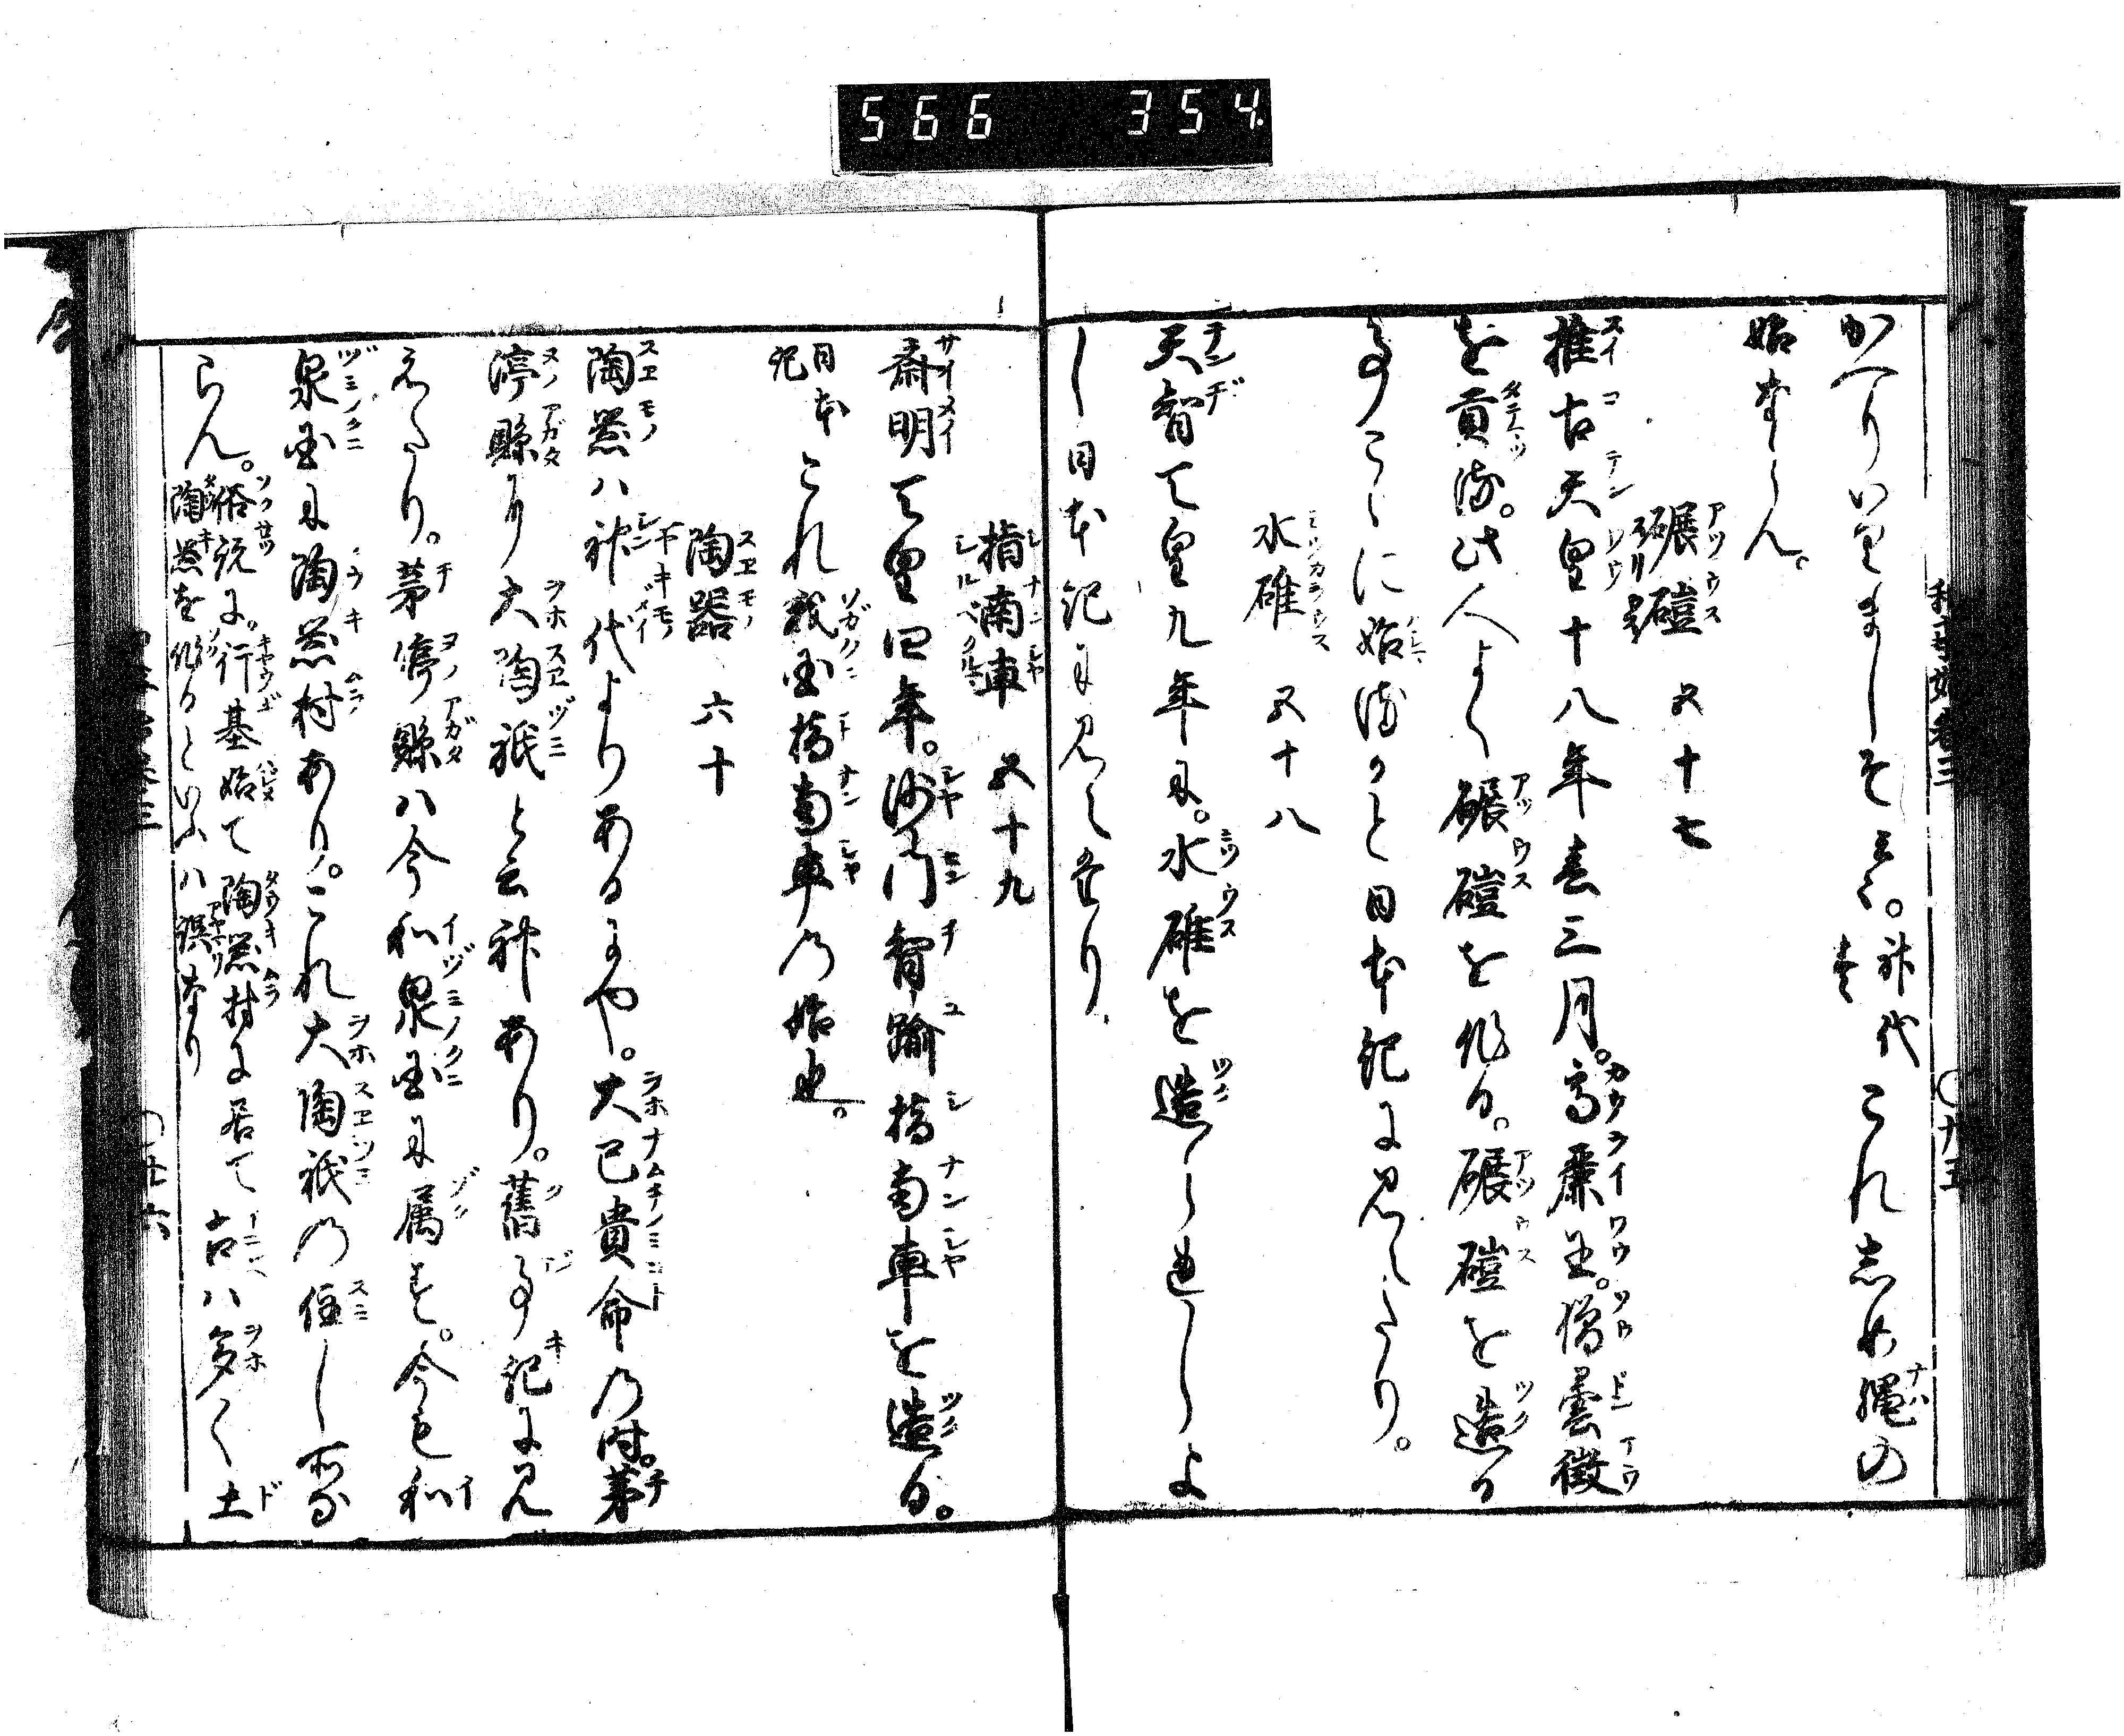 566 354
かへりいりましそと云云。神代巻これしめ縄の
始ならん。
碾磑 五十七
推古天皇十八年春三月。高麗王。僧曇徴
を貢る。此人よく碾磑を作る。碾磑を造る
事こゝに始ると日本紀に見へたり。
水碓 五十八
天智天皇九年に。水碓を造らしむ
日本紀に見へたり
指南車 五十九
斎明天皇四年。沙門智踰指南車を造る。
日本紀これ我国指南車の始也。
陶器 六十
陶器ハ神代よりあるにや。大已貴命の時。茅
渟縣に大陶祇と云神あり。舊事記に見
えたり。茅渟縣ハ今和泉国に属す。今も和
泉国に陶器村あり。これ大陶祇の住し所な
らん。俗説に。行基始て陶器村に居て陶器を作るといふハ誤なり 古ハ多く土